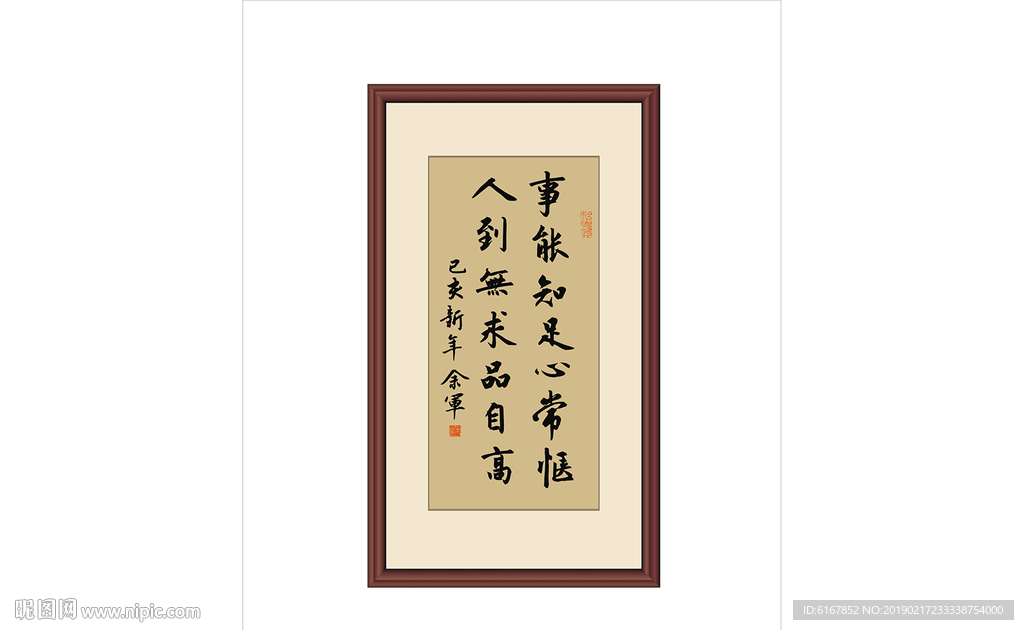 事能知足心常惬
人到無求品自高
己亥新年 余軍
昵图网 www.nipic.com
ID:6167852 NO:20190217233338754000